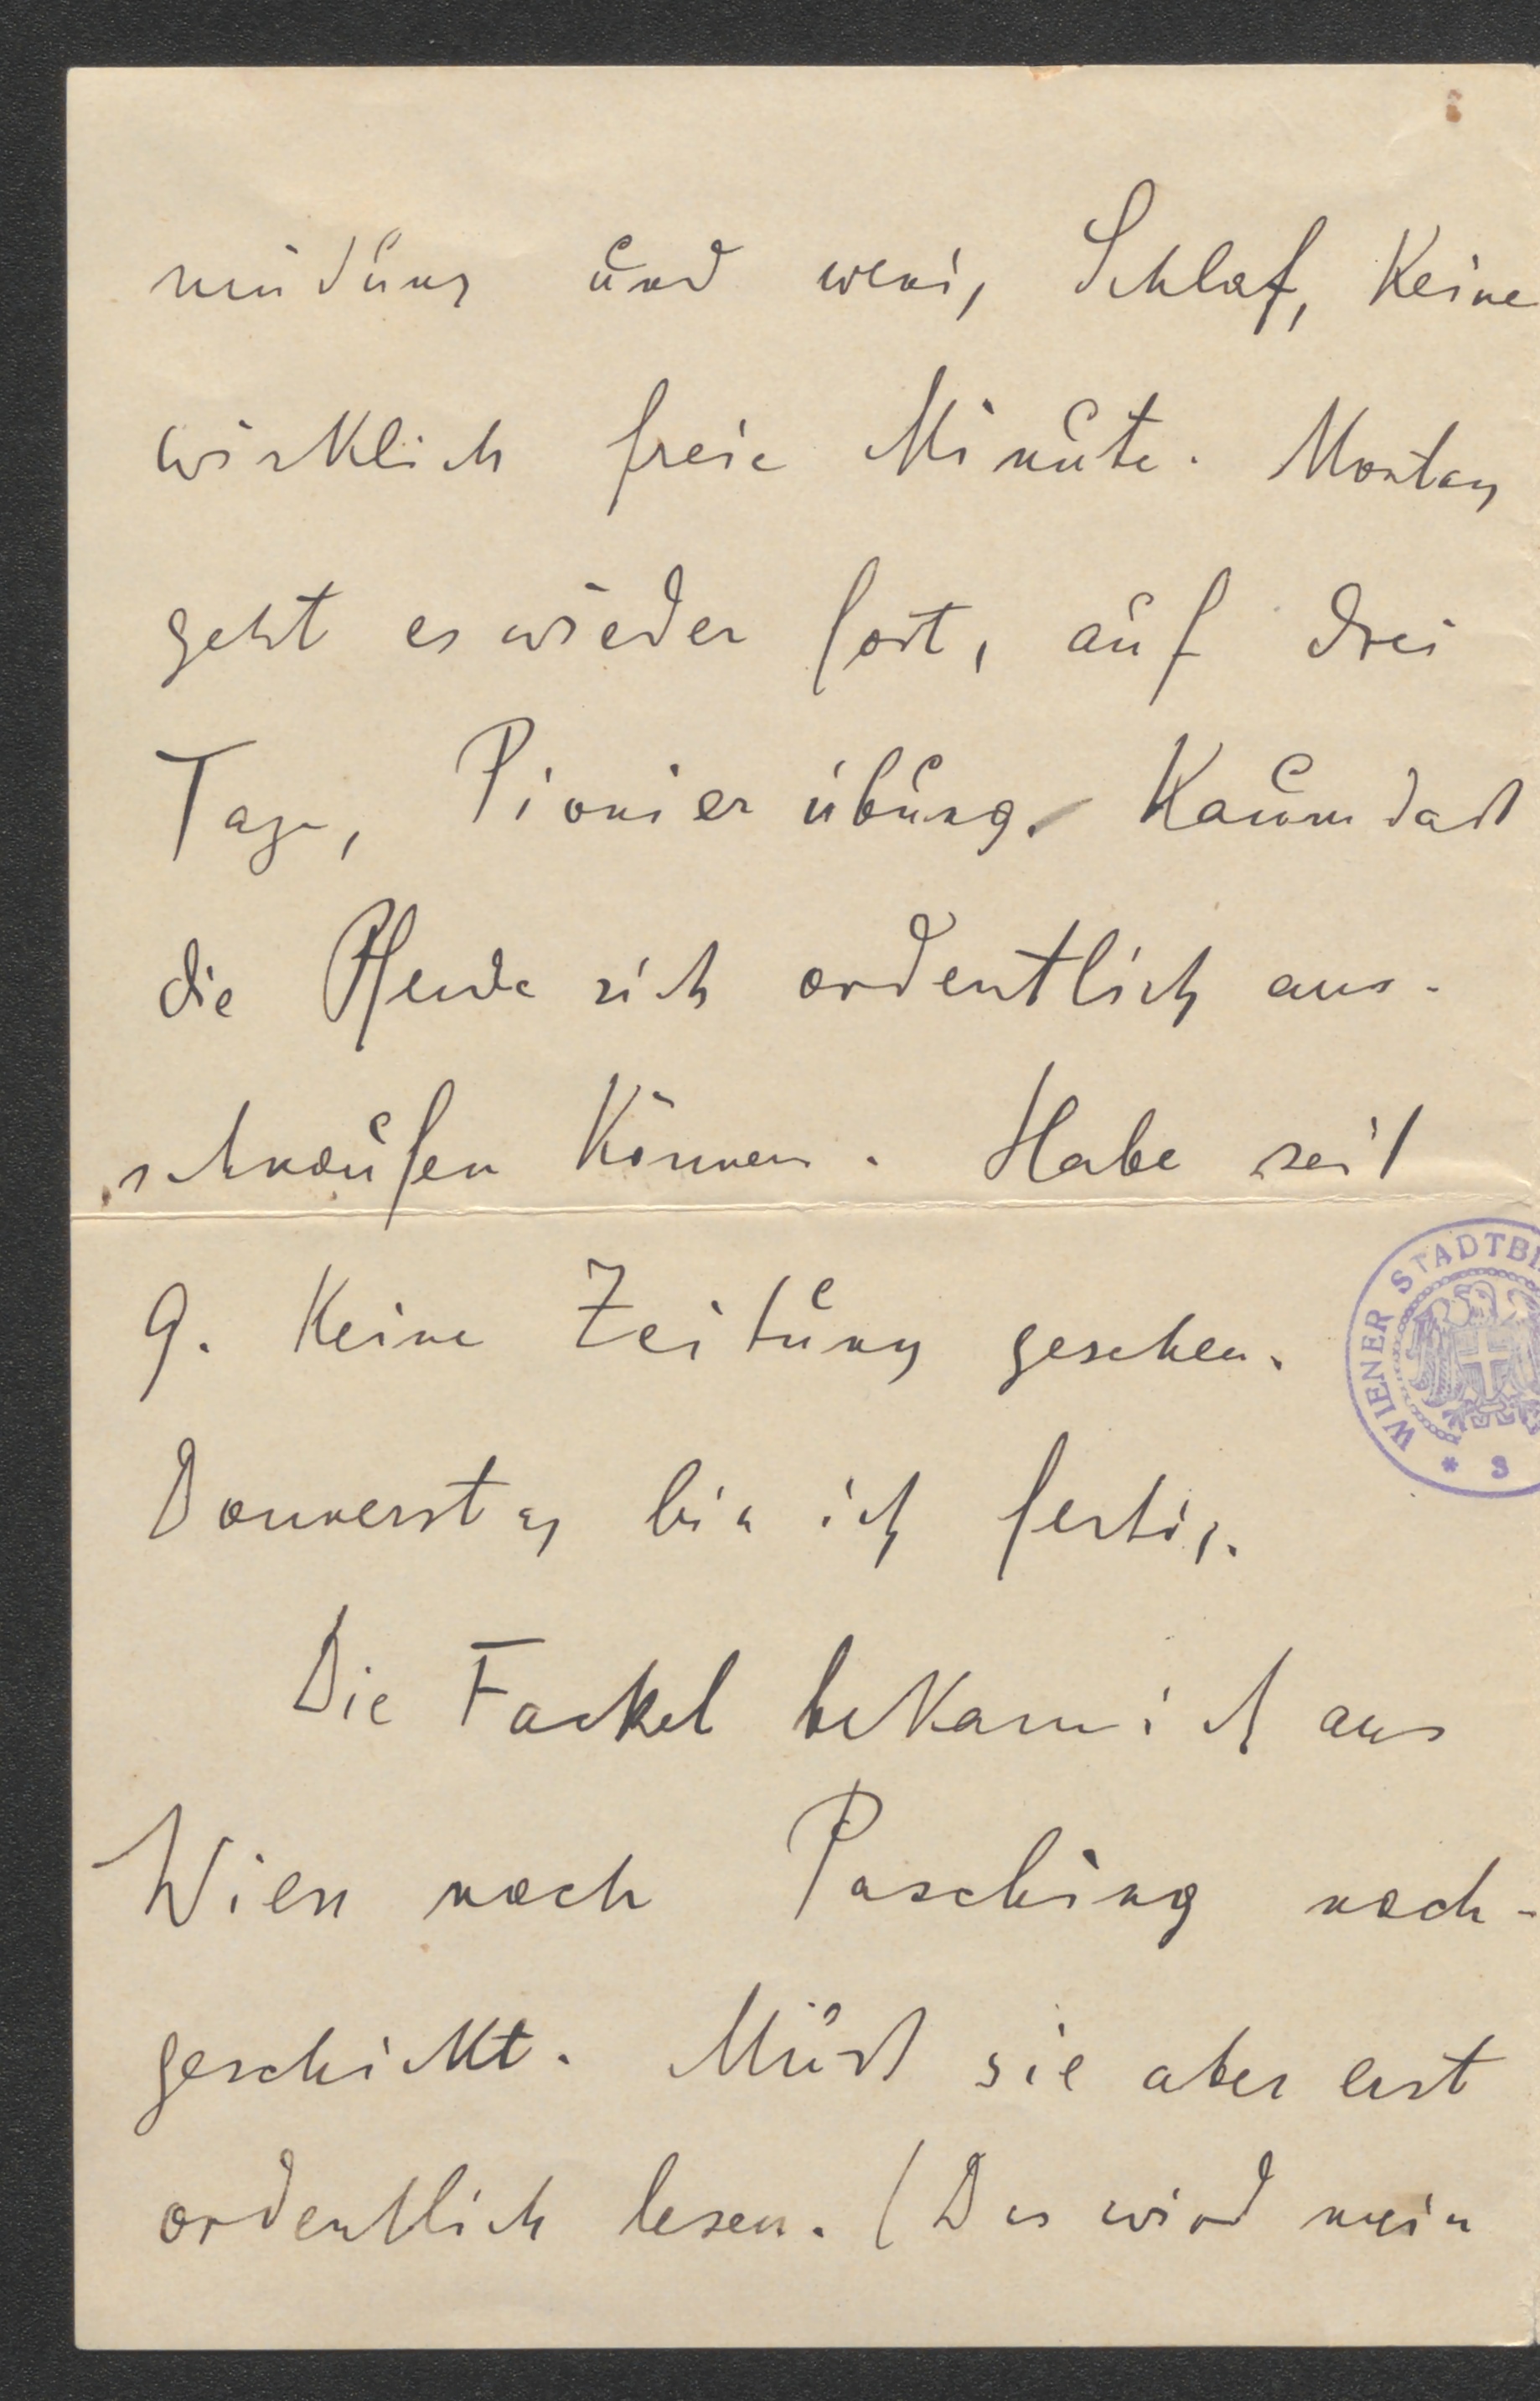 müdung und wenig Schlaf, Keine
wirklich freie Minute. Montag
geht es wieder fort, auf drei
Tage, Pionierübung. Kaum daß
die Pferde sich ordentlich aus-
schnaufen können. Habe seit
9. Keine Zeitung gesehen.
WIENER STADTBI
* S
Donnerstag bin ich fertig.
Die Fackel bekam ich aus
Wien nach Pasching nach-
geschickt. Muß sie aber erst
ordentlich lesen. (Das wird mein